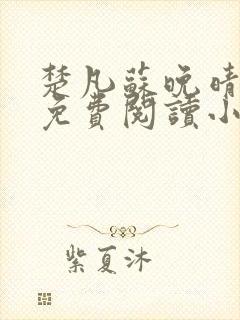 楚凡蘇晚晴
免費閱讀小
紫夏沐